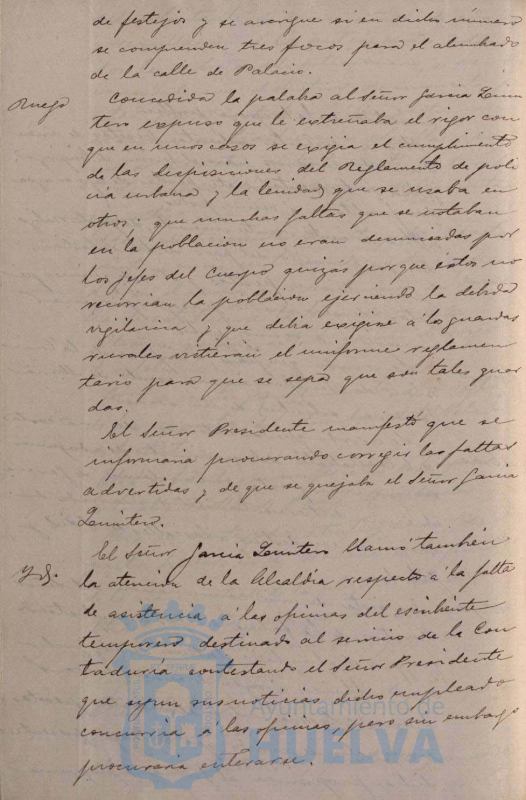 de festejos y se averigüe si en dicho número
se comprenden tres focos para el alumbrado
de la calle de Palacio.
Ruego
Concedida la palabra al Señor Garcia Quin
tero expuso que le extrañaba el rigor con
que en unos casos se exigia el cumplimiento
de las disposiciones del Reglamento de poli
cia urbana y la lenidad que se usaba en
otros: que muchas faltas que se notaban
en la poblacion no eran denunciadas por
los jefes del Cuerpo quizás porque estos no
recorrian la poblacion ejerciendo la debida
vigilancia y que debia exigirse á los guardas
rurales vistieran el uniforme reglamen
tario para que se sepa que son tales guar
das.
El Señor Presidente manifestó que se
informaria procurando corregir las faltas
advertidas y de que se quejaba el Señor Garcia
Quintero.
Yd.
El Señor Garcia Quintero llamó también
la atencion de la Alcaldía respecto á la falta
de asistencia á las oficinas del escribiente
temporero destinado al servicio de la Con
taduría contestando el Señor Presidente
que segun sus noticias dicho empleado
concurria á las oficinas, pero sin embargo
procuraria enterarse.
Ayuntamiento de
HUELVA